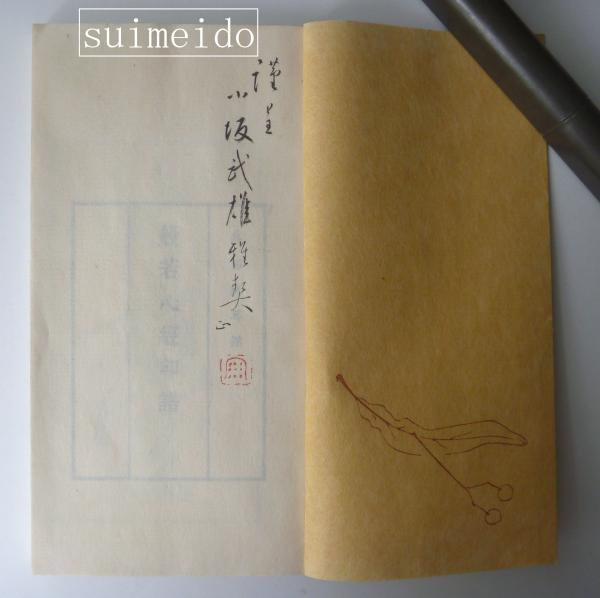 suimeido
謹呈
小坂武雄雅契
正
般若心経印譜